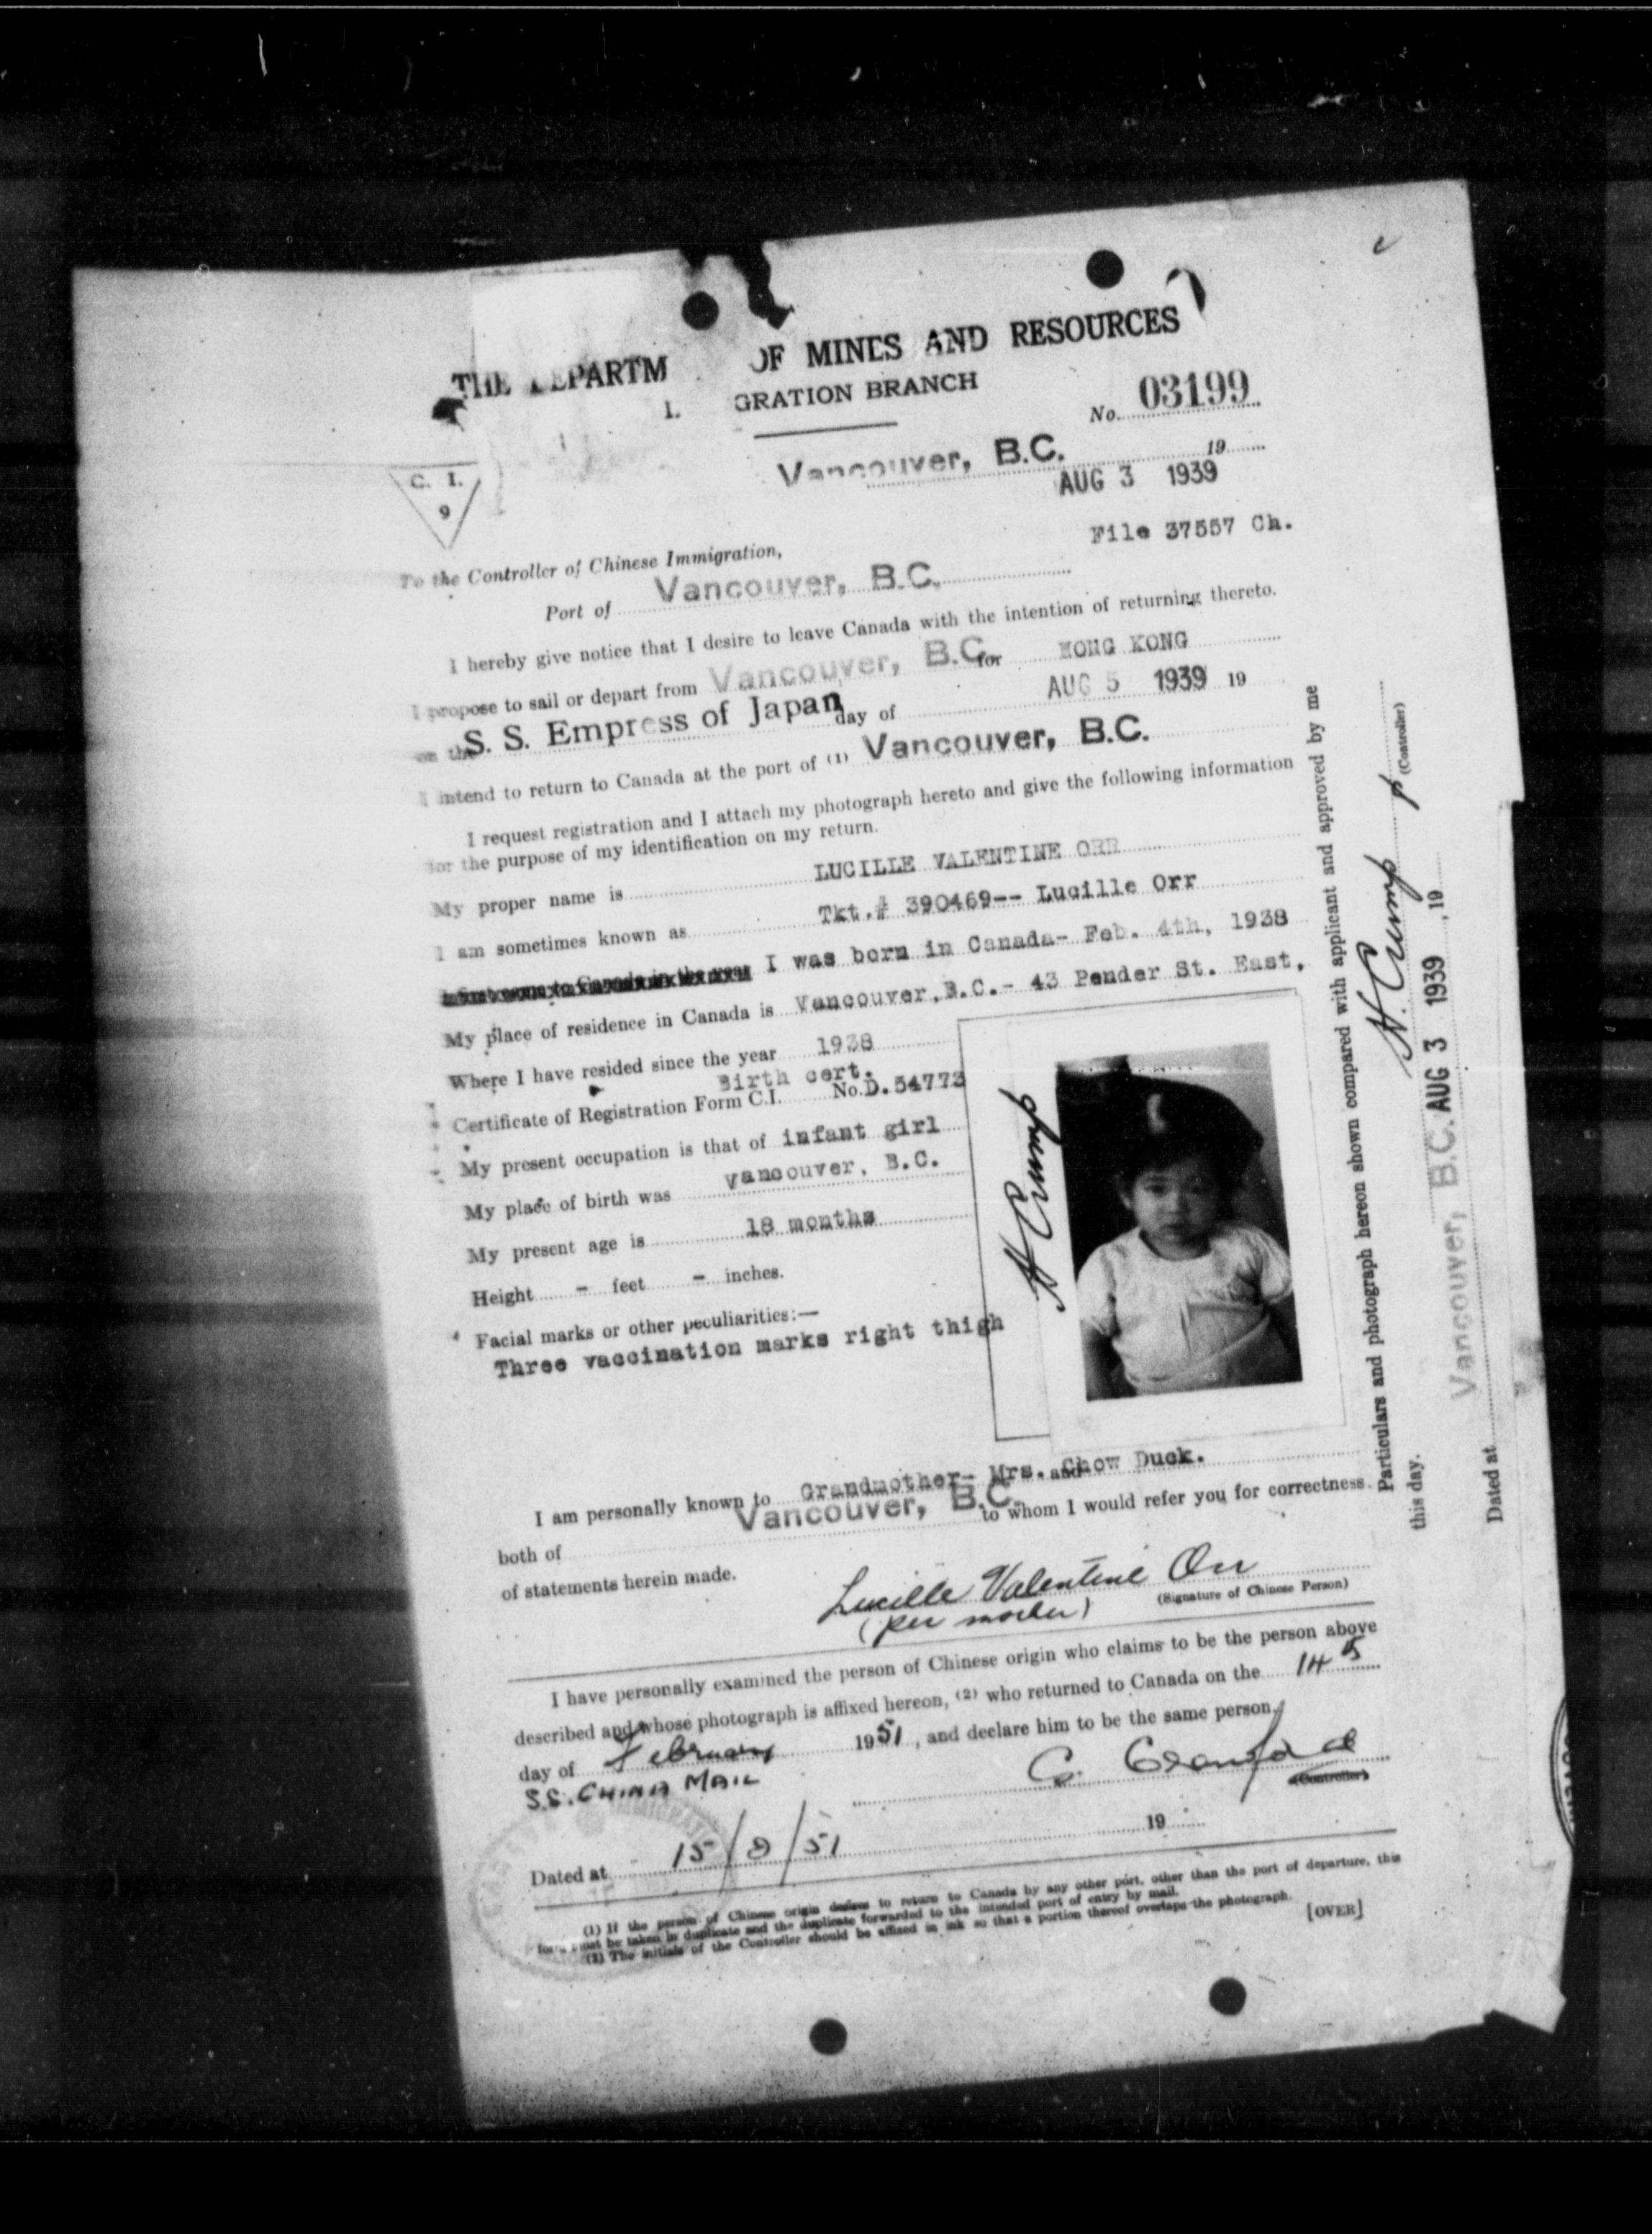 THE DEPARTM OF MINES AND RESOURCES
GRATION BRANCH
No. 03199
Vancouver, B.C. 19
AUG 3 1939
C. I.
9
File 37557 Ch.
To the Controller of Chinese Immigration,
Port of Vancouver, B.C.
I hereby give notice that I desire to leave Canada with the intention of returning thereto.
I propose to sail or depart from Vancouver, B.C. for HONG KONG
on the S. S. Empress of Japan day of AUG 5 1939 19
I intend to return to Canada at the port of (1) Vancouver, B.C.
I request registration and I attach my photograph hereto and give the following information
for the purpose of my identification on my return.
My proper name is LUCILLE VALENTINE ORR
I am sometimes known as Tkt.# 390469-- Lucille Orr
I was born in Canada- Feb. 4th, 1938
My place of residence in Canada is Vancouver, B.C.- 43 Pender St. East,
Where I have resided since the year 1938
Birth cert.
Certificate of Registration Form C.I. No. D.54773
My present occupation is that of infant girl
My place of birth was Vancouver, B.C.
My present age is 18 months
Height - feet - inches.
Facial marks or other peculiarities:—
Three vaccination marks right thigh
I am personally known to Grandmother- Mrs. and Chow Duck.
both of Vancouver, B.C. to whom I would refer you for correctness
of statements herein made.
Lucille Valentine Orr
(per mother)
(Signature of Chinese Person)
I have personally examined the person of Chinese origin who claims to be the person above
described and whose photograph is affixed hereon, (2) who returned to Canada on the 14
day of February 1951, and declare him to be the same person.
S.S. CHINA MAIL
(Controller)
Dated at 15/ /51 19
(1) If the person of Chinese origin desires to return to Canada by any other port, other than the port of departure, this
form must be taken in duplicate and the duplicate forwarded to the intended port of entry by mail.
(2) The initials of the Controller should be affixed in ink so that a portion thereof overlaps the photograph.
[OVER]
Particulars and photograph hereon shown compared with applicant and approved by me
this day.
(Controller)
Dated at Vancouver, B.C. AUG 3 1939, 19